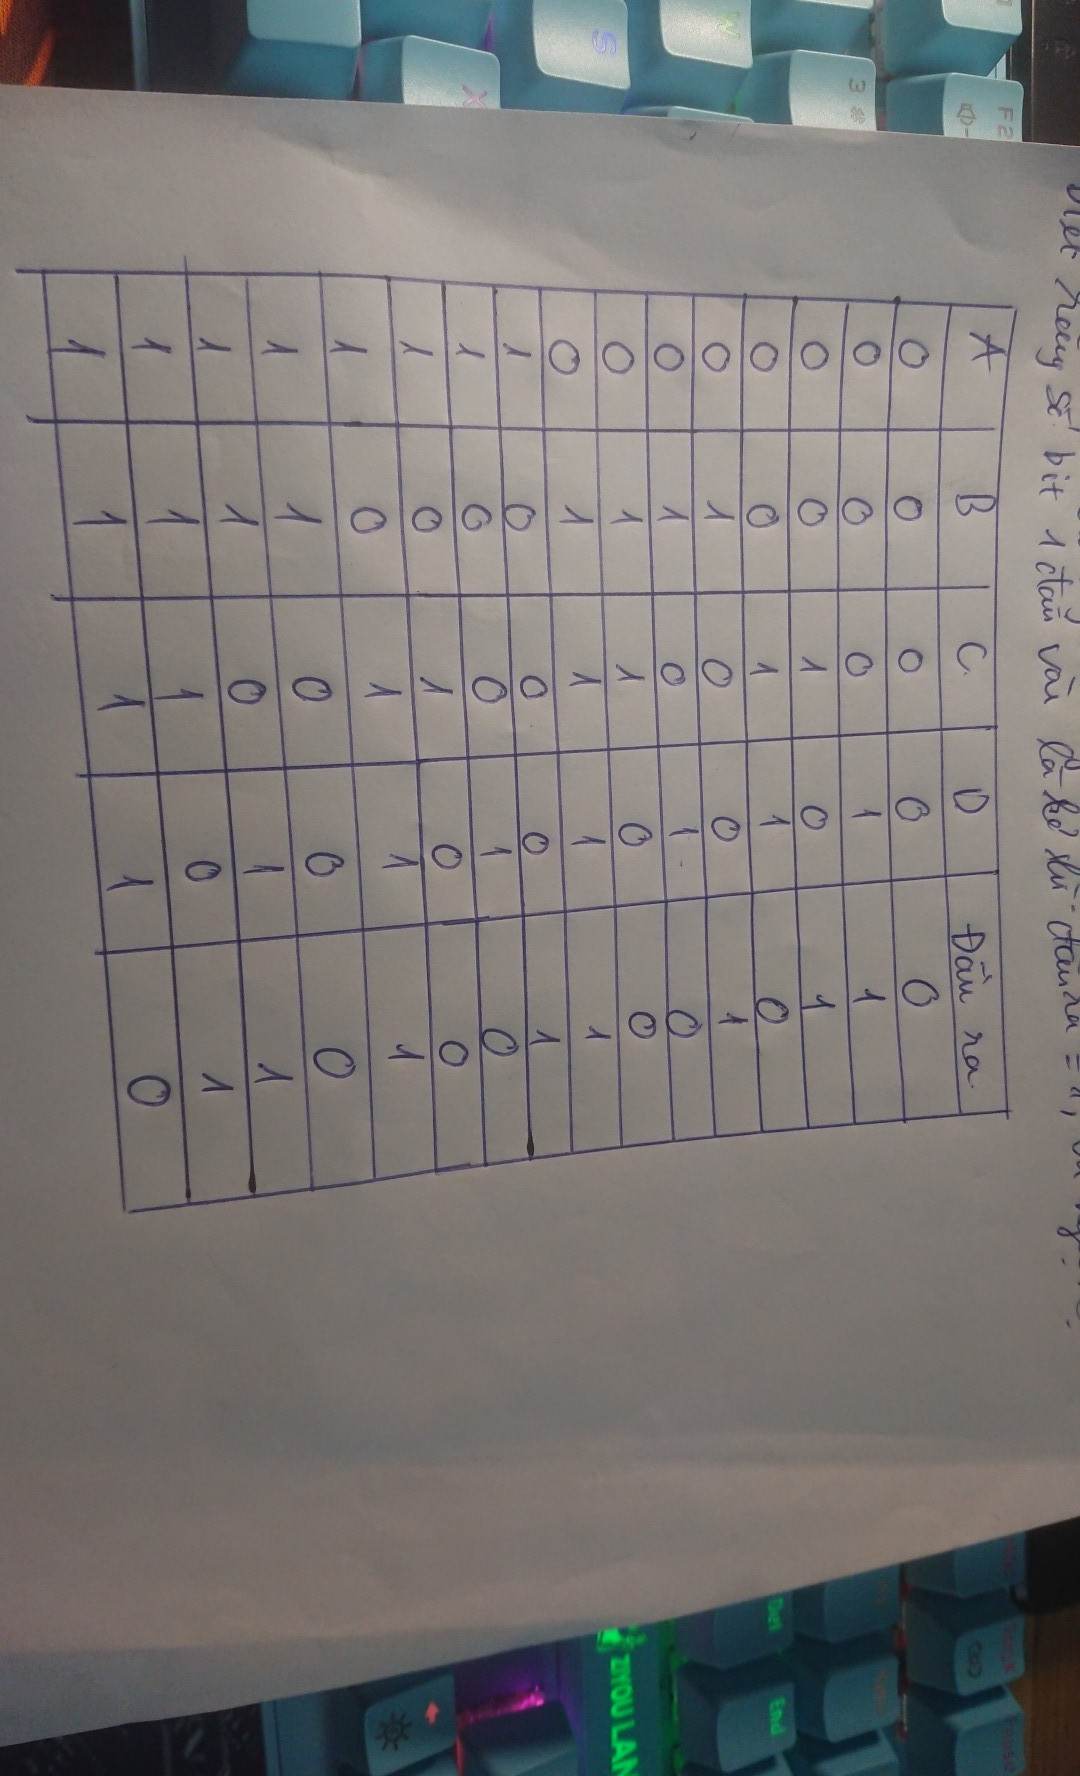 bit 1 đầu vài là
A B C. D Đầu ra.
0 0 0 0 0
0 0 0 1 1
0 0 1 0 1
0 0 1 1 0
0 1 0 0 1
0 1 0 1 0
0 1 1 0 0
0 1 1 1 1
1 0 0 0 1
1 0 0 1 0
1 0 1 0 0
1 0 1 1 1
1 1 0 0 0
1 1 0 1 1
1 1 1 0 1
1 1 1 1 0
F2
3
W
S
X
Del
End
ZIYOU LAN